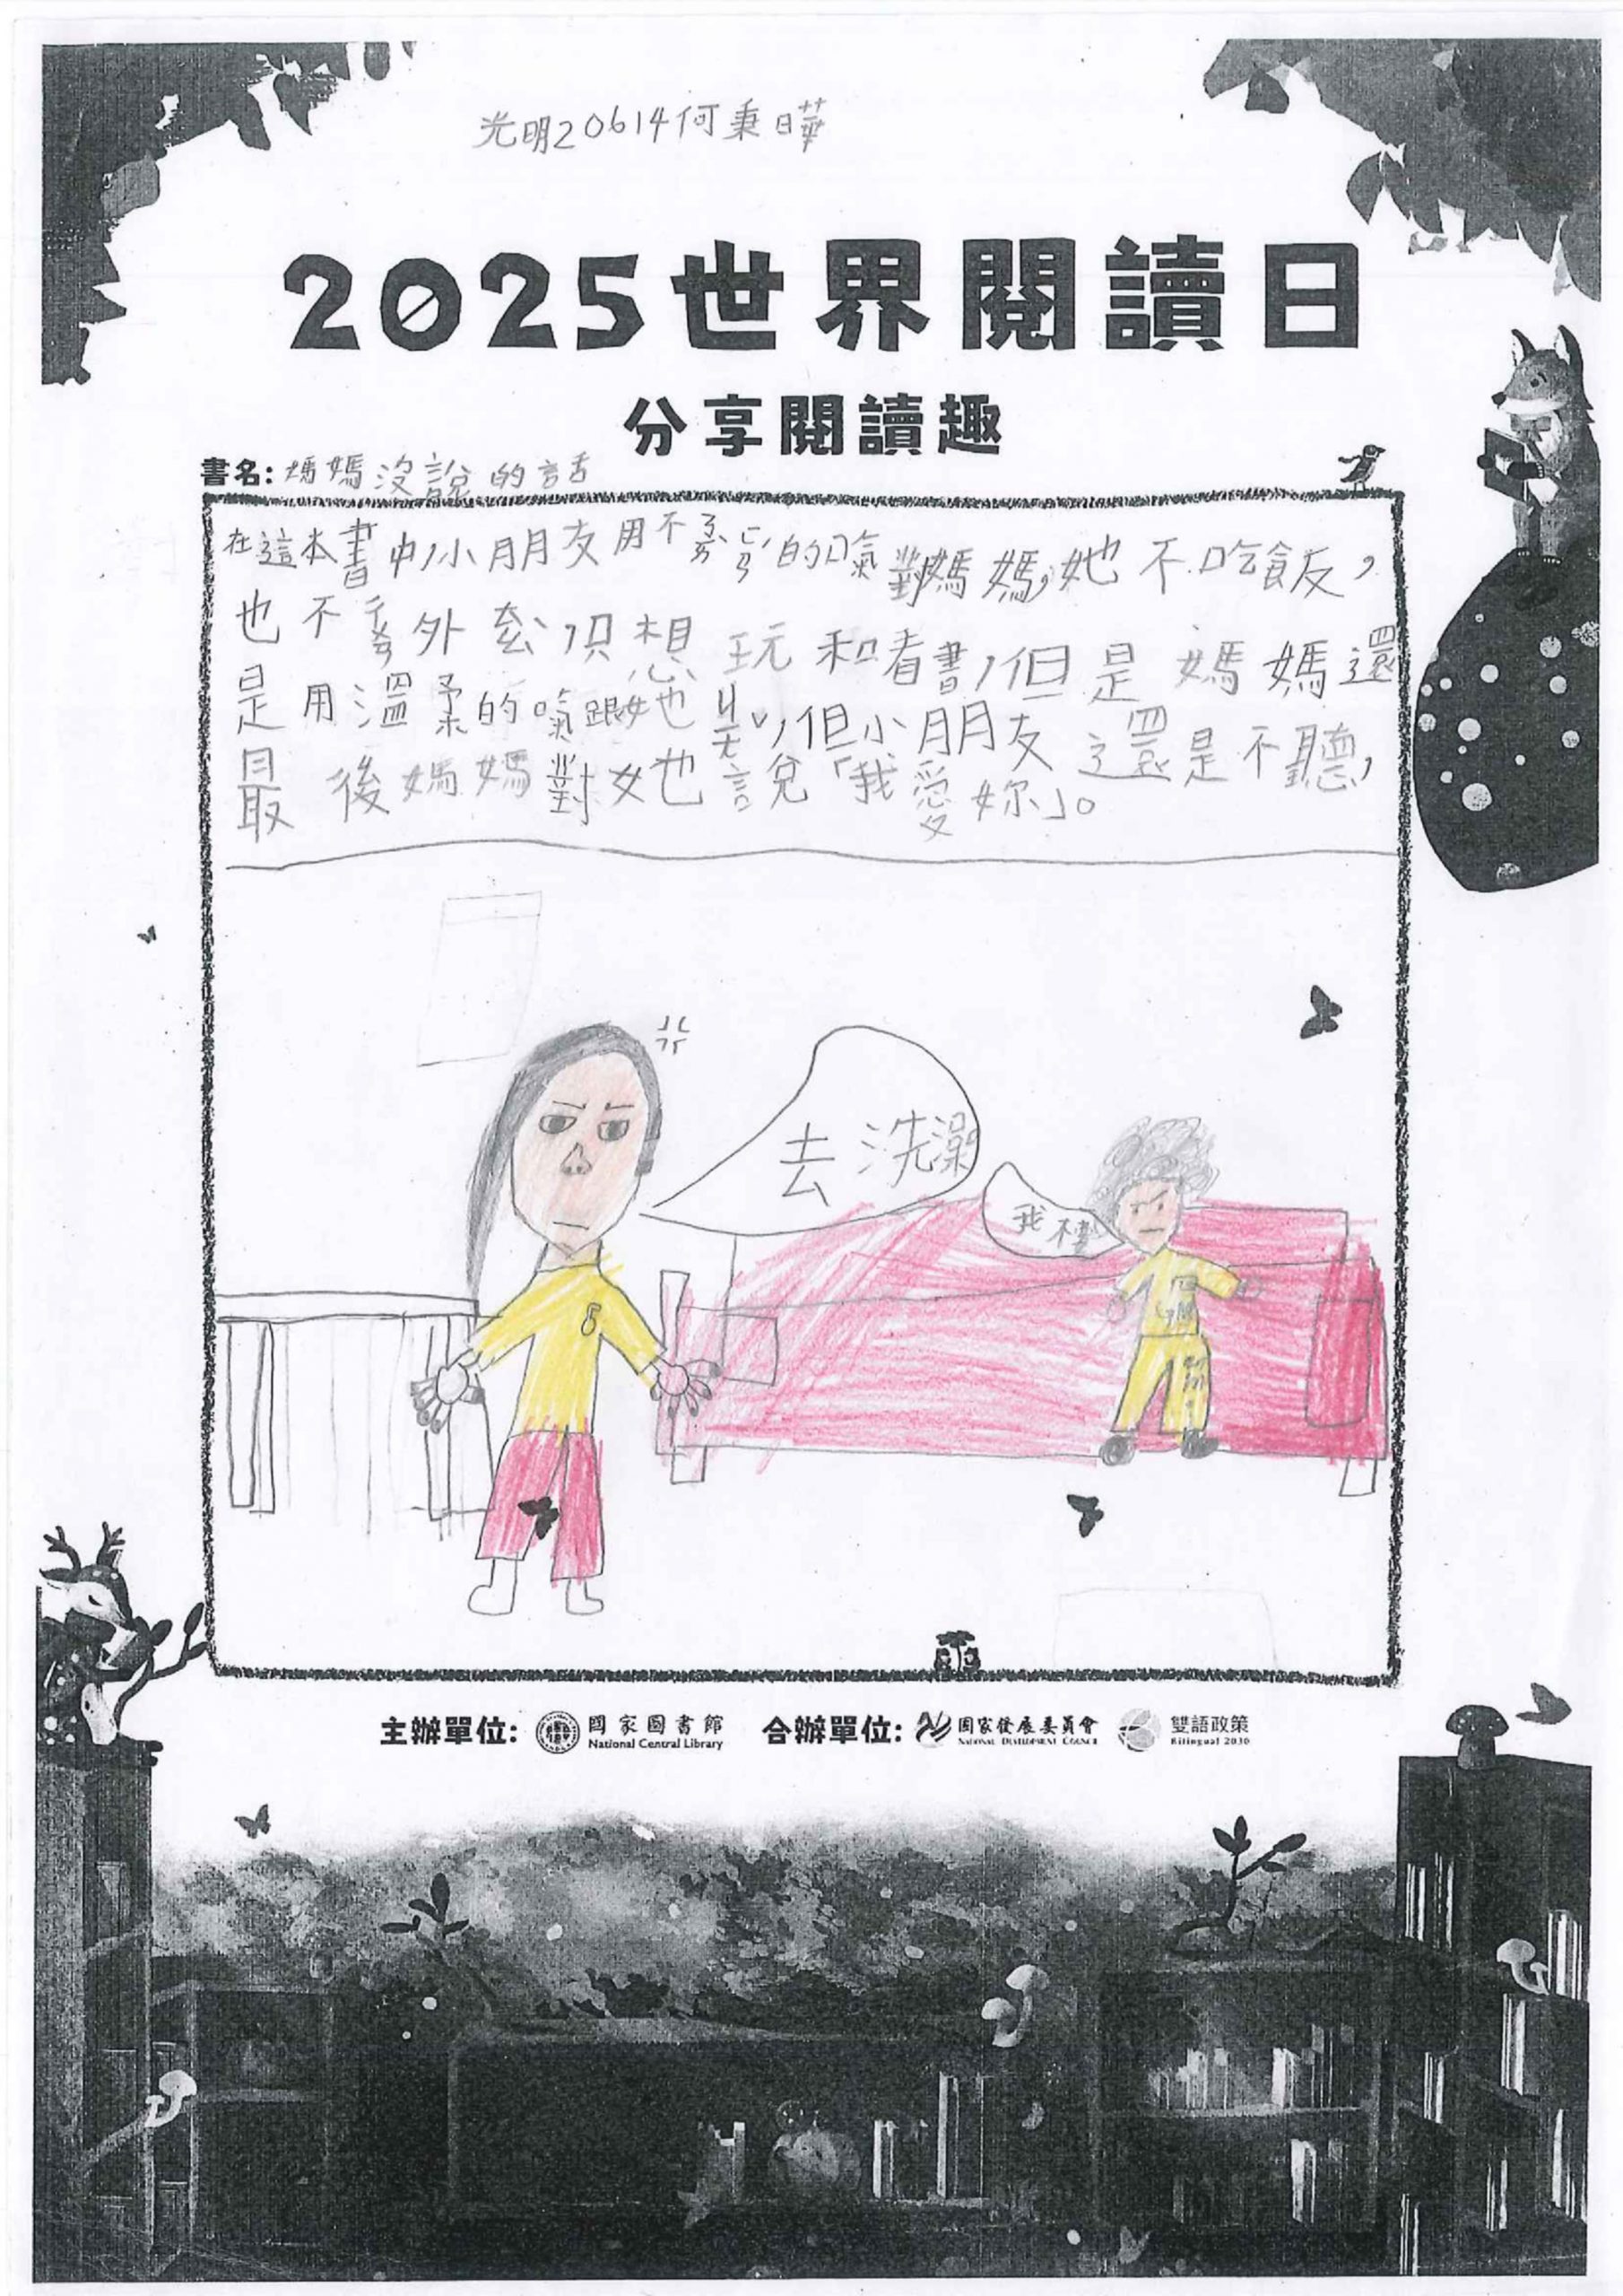 光明20614何秉曄
2025世界閱讀日
分享閱讀趣
書名: 媽媽沒說的話
在這本書中,小朋友用不ㄋㄞˋㄈㄢˊ的口氣對媽媽,她不吃飯,
也不ㄔㄨㄢ外套,只想玩和看書,但是媽媽還
是用溫柔的口氣跟她
,但小朋友還是不聽,
最後媽媽對她說「我愛妳」。
去洗澡
我不要
主辦單位: 國家圖書館 National Central Library 合辦單位: 國家發展委員會 National Development Council 雙語政策 Bilingual 2030